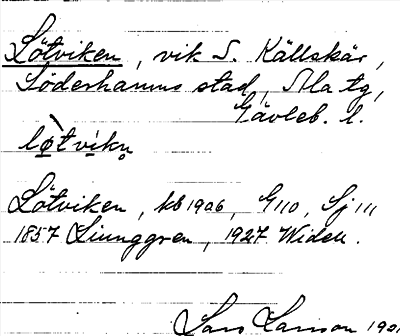 Lötviken, vik S. Källskär,
Söderhamns stad, Ala tg,
Gävleb. l.
lø̀tvíkn̥
Lötviken, kb 1906, G110, Sj 111
1857 Ljunggren, 1927 Widell.
Lars Larsson 19